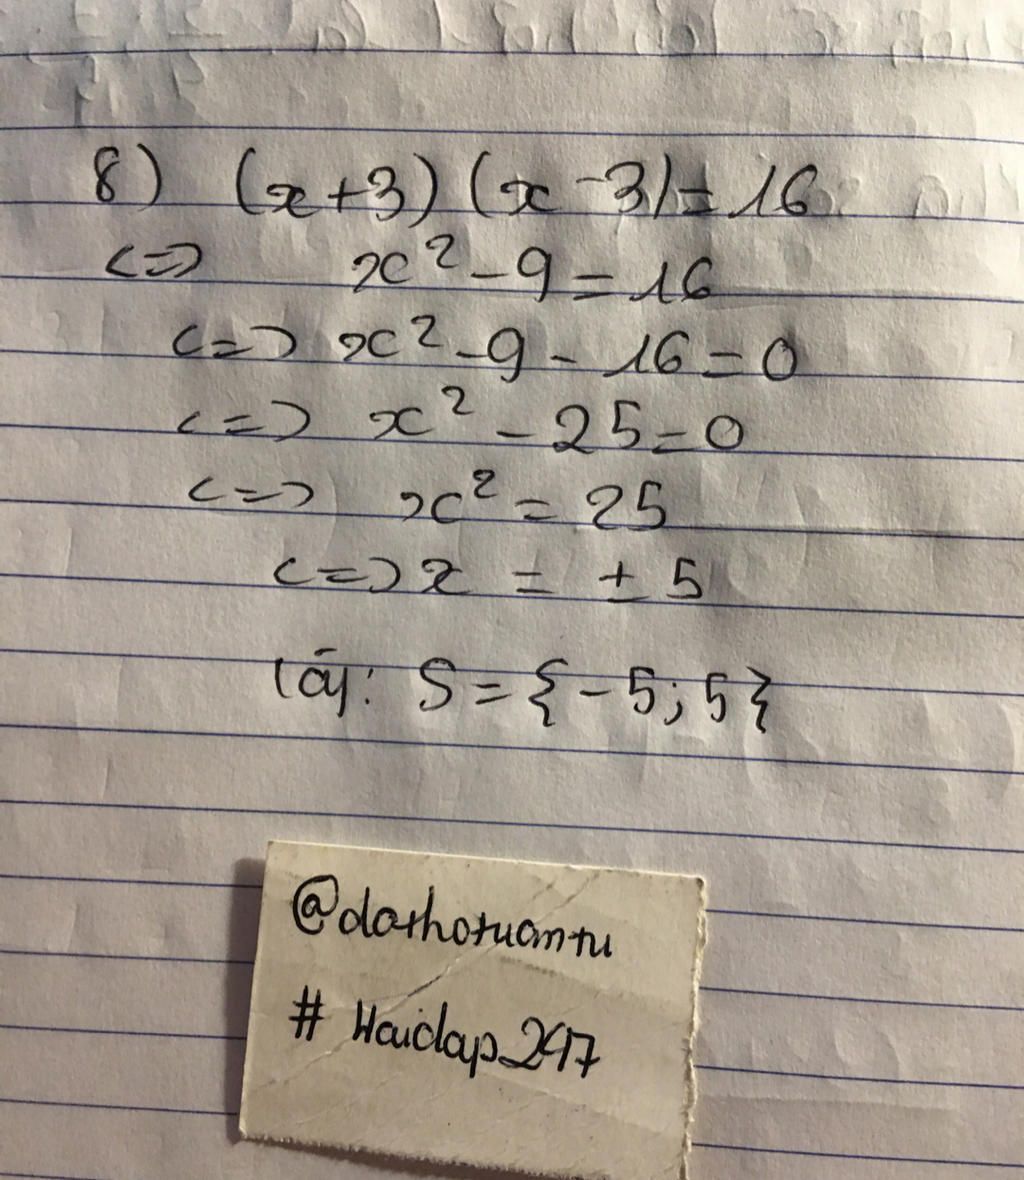 8) (x+3)(x-3)=16
<=> x²-9=16
<=> x²-9-16=0
<=> x²-25=0
<=> x²=25
<=> x = ±5
S={-5;5}
@dathotuantu
# Hoidap_247